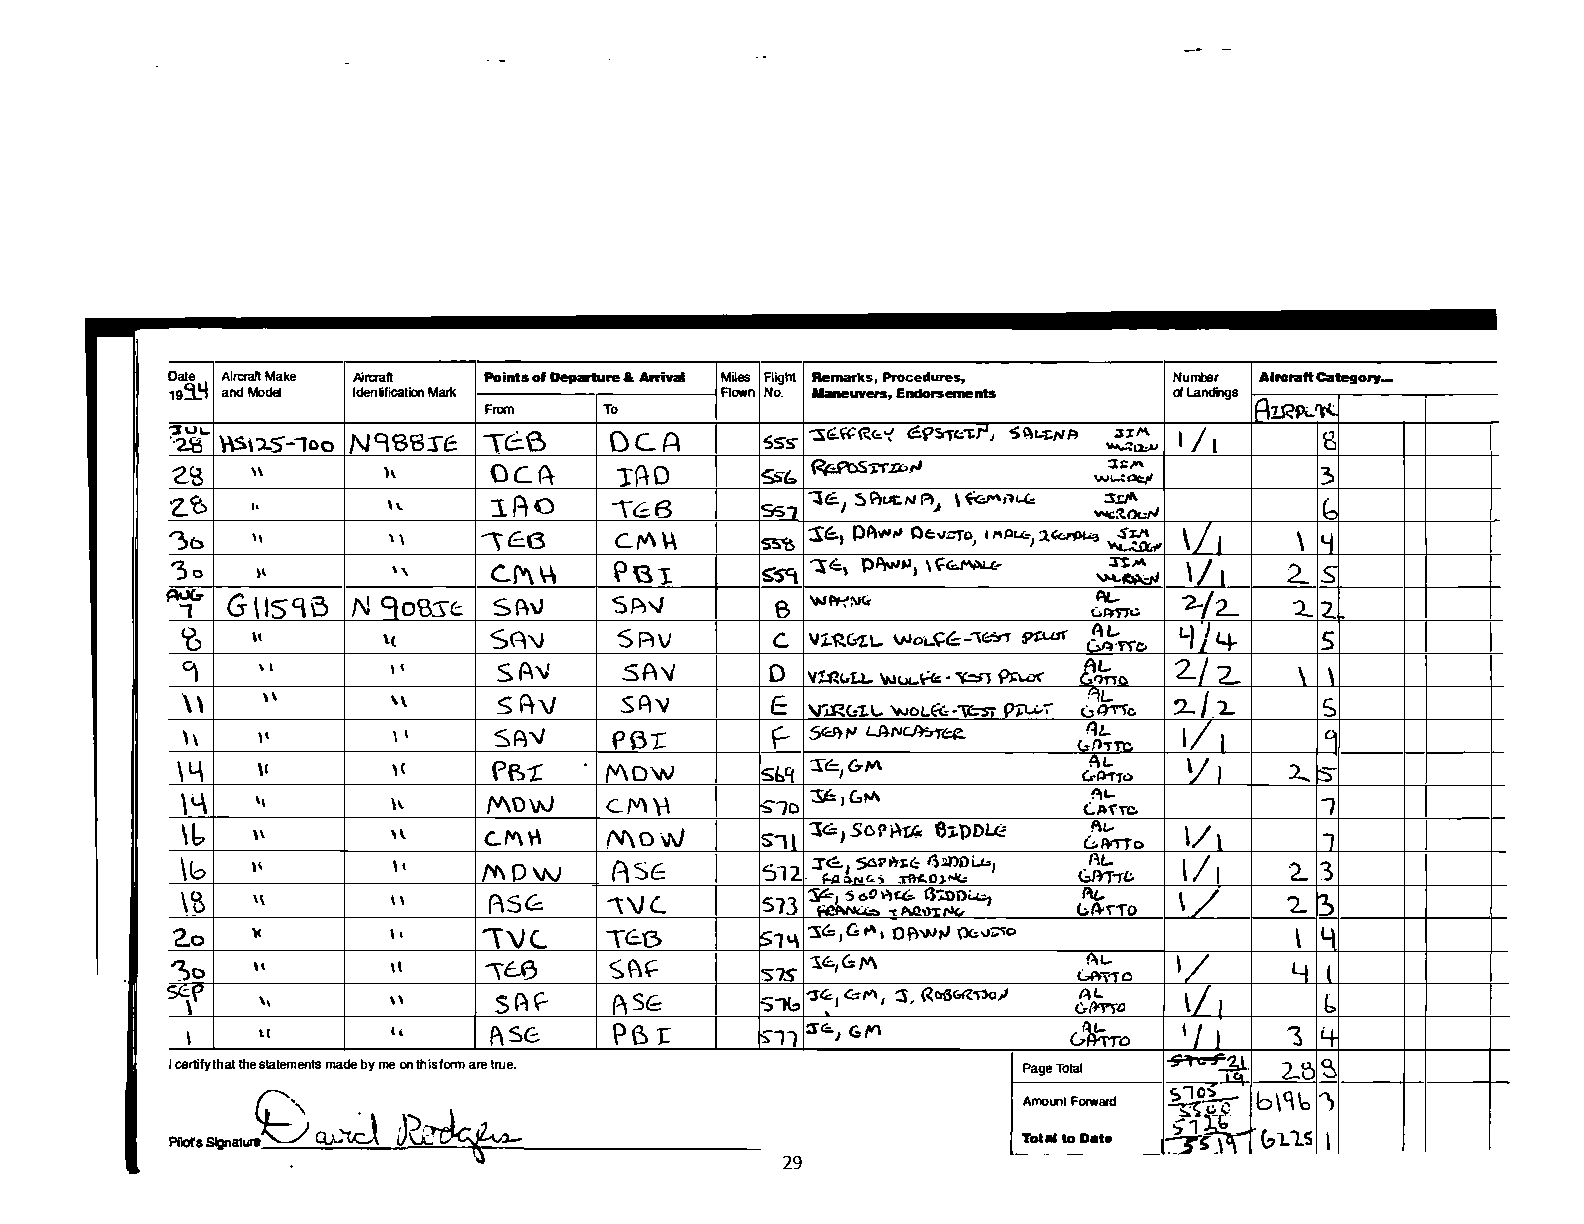 Date Aircraft Make Aircraft Points of Departure & Arrival Miles Flight Remarks, Procedures, Number Aircraft Category—
1994 and Model Identification Mark Flown No. Maneuvers, Endorsements of Landings
From To AIRPLN
JUL 28 HS125-700 N988JE TEB DCA 555 JEFFREY EPSTEIN, SALENA JIM 1/1 8
28 " " DCA IAD 556 REPOSITION JIM 3
28 " " IAD TEB 557 JE, SALENA, 1 FEMALE JIM 6
30 " " TEB CMH 558 JE, DAWN DEVITO, 1 MALE, 2 FEMALES JIM 1/1 1 4
30 " " CMH PBI 559 JE, DAWN, 1 FEMALE JIM 1/1 2 5
AUG 7 G1159B N908JE SAV SAV B WAYNE AL GATTO 2/2 2 2
8 " " SAV SAV C VIRGIL WOLFE-TEST PILOT AL GATTO 4/4 5
9 " " SAV SAV D VIRGIL WOLFE-TEST PILOT AL GATTO 2/2 1 1
11 " " SAV SAV E VIRGIL WOLFE-TEST PILOT AL GATTO 2/2 5
11 " " SAV PBI F SEAN LANCASTER AL GATTO 1/1 9
14 " " PBI MDW 569 JE, GM AL GATTO 1/1 2 5
14 " " MDW CMH 570 JE, GM AL GATTO 7
16 " " CMH MDW 571 JE, SOPHIE BIDDLE AL GATTO 1/1 7
16 " " MDW ASE 572 JE, SOPHIE BIDDLE, FRANCES JARDING AL GATTO 1/1 2 3
18 " " ASE TVC 573 JE, SOPHIE BIDDLE, FRANCES JARDING AL GATTO 1/ 2 3
20 " " TVC TEB 574 JE, GM, DAWN DEVITO 1 4
30 " " TEB SAF 575 JE, GM AL GATTO 1/ 4 1
SEP 1 " " SAF ASE 576 JE, GM, J. ROBERTSON AL GATTO 1/1 6
1 " " ASE PBI 577 JE, GM AL GATTO 1/1 3 4
I certify that the statements made by me on this form are true. Page Total 21/19 28 8
Amount Forward 5705/5500 6196 3
Pilot's Signature David Rodgers Total to Date 5726/5519 6225 1
29